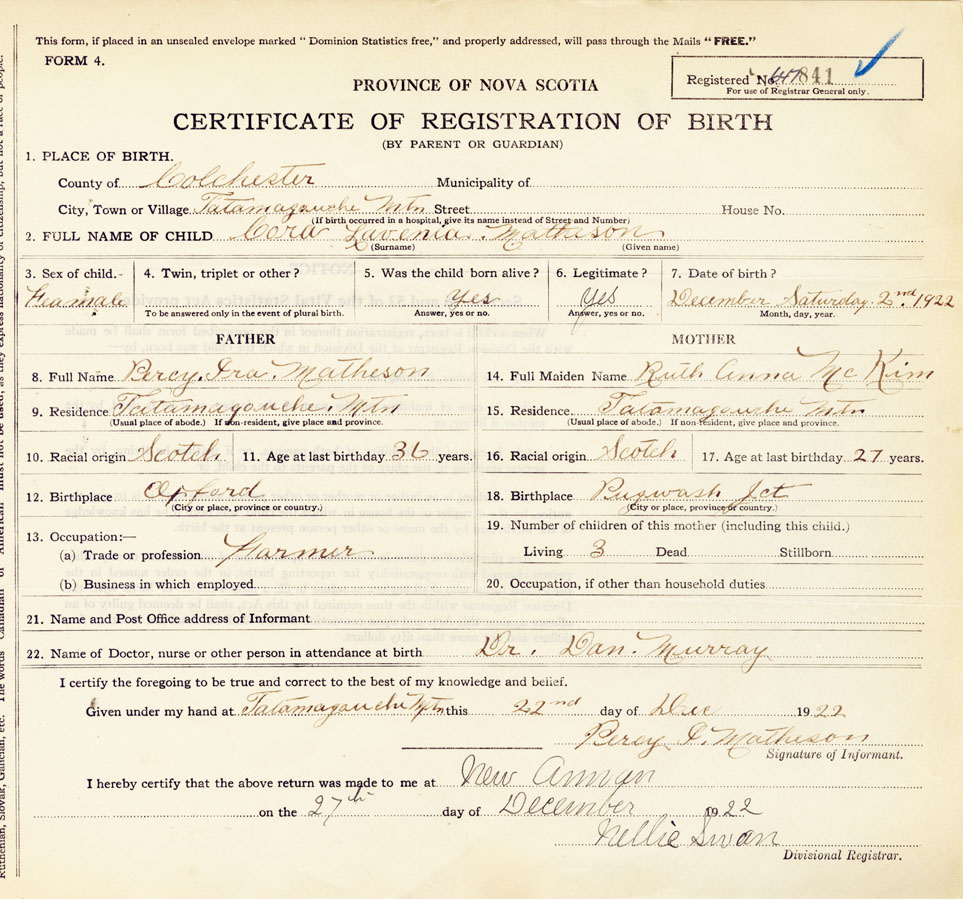 This form, if placed in an unsealed envelope marked “ Dominion Statistics free,” and properly addressed, will pass through the Mails “ FREE.”
FORM 4.
Registered No. 647 841
For use of Registrar General only.
PROVINCE OF NOVA SCOTIA
CERTIFICATE OF REGISTRATION OF BIRTH
(BY PARENT OR GUARDIAN)
1. PLACE OF BIRTH.
County of Colchester Municipality of
City, Town or Village Tatamagouche Mtn Street House No.
(If birth occurred in a hospital, give its name instead of Street and Number)
2. FULL NAME OF CHILD Cora Lavenia Matheson
(Surname) (Given name)
3. Sex of child.- 4. Twin, triplet or other? 5. Was the child born alive? 6. Legitimate? 7. Date of birth?
Feamale Yes Yes December Saturday 2nd 1922
To be answered only in the event of plural birth. Answer, yes or no. Answer, yes or no. Month, day, year.
FATHER MOTHER
8. Full Name Percy Ira Matheson 14. Full Maiden Name Ruth Anna McKim
9. Residence Tatamagouche Mtn 15. Residence. Tatamagouche Mtn
(Usual place of abode.) If non-resident, give place and province. (Usual place of abode.) If non-resident, give place and province.
10. Racial origin Scotch 11. Age at last birthday 36 years. 16. Racial origin Scotch 17. Age at last birthday 27 years.
12. Birthplace Oxford 18. Birthplace Pugwash Jct
(City or place, province or country.) (City or place, province or country.)
13. Occupation:— 19. Number of children of this mother (including this child.)
(a) Trade or profession Farmer Living 3 Dead Stillborn
(b) Business in which employed 20. Occupation, if other than household duties
21. Name and Post Office address of Informant
22. Name of Doctor, nurse or other person in attendance at birth Dr. Dan. Murray
I certify the foregoing to be true and correct to the best of my knowledge and belief.
Given under my hand at Tatamagouche Mtn this 22nd day of Dec 1922
Percy I. Matheson
Signature of Informant.
I hereby certify that the above return was made to me at New Annan
on the 27th day of December 1922
Nellie Swan
Divisional Registrar.